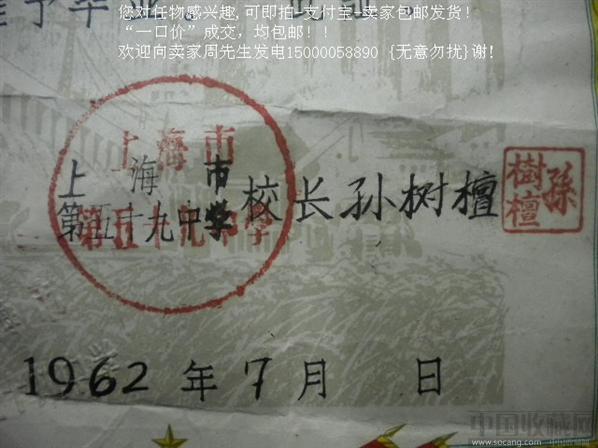 您对任物感兴趣,可即拍-支付宝-卖家包邮发货!
“一口价”成交，均包邮！！
欢迎向卖家周先生发电15000058890 {无意勿扰}谢!
上海市
上海市
第五十九中学校长孙树檀
第五十九中学
孫樹檀
1962年7月 日
中国收藏网
www.socang.com